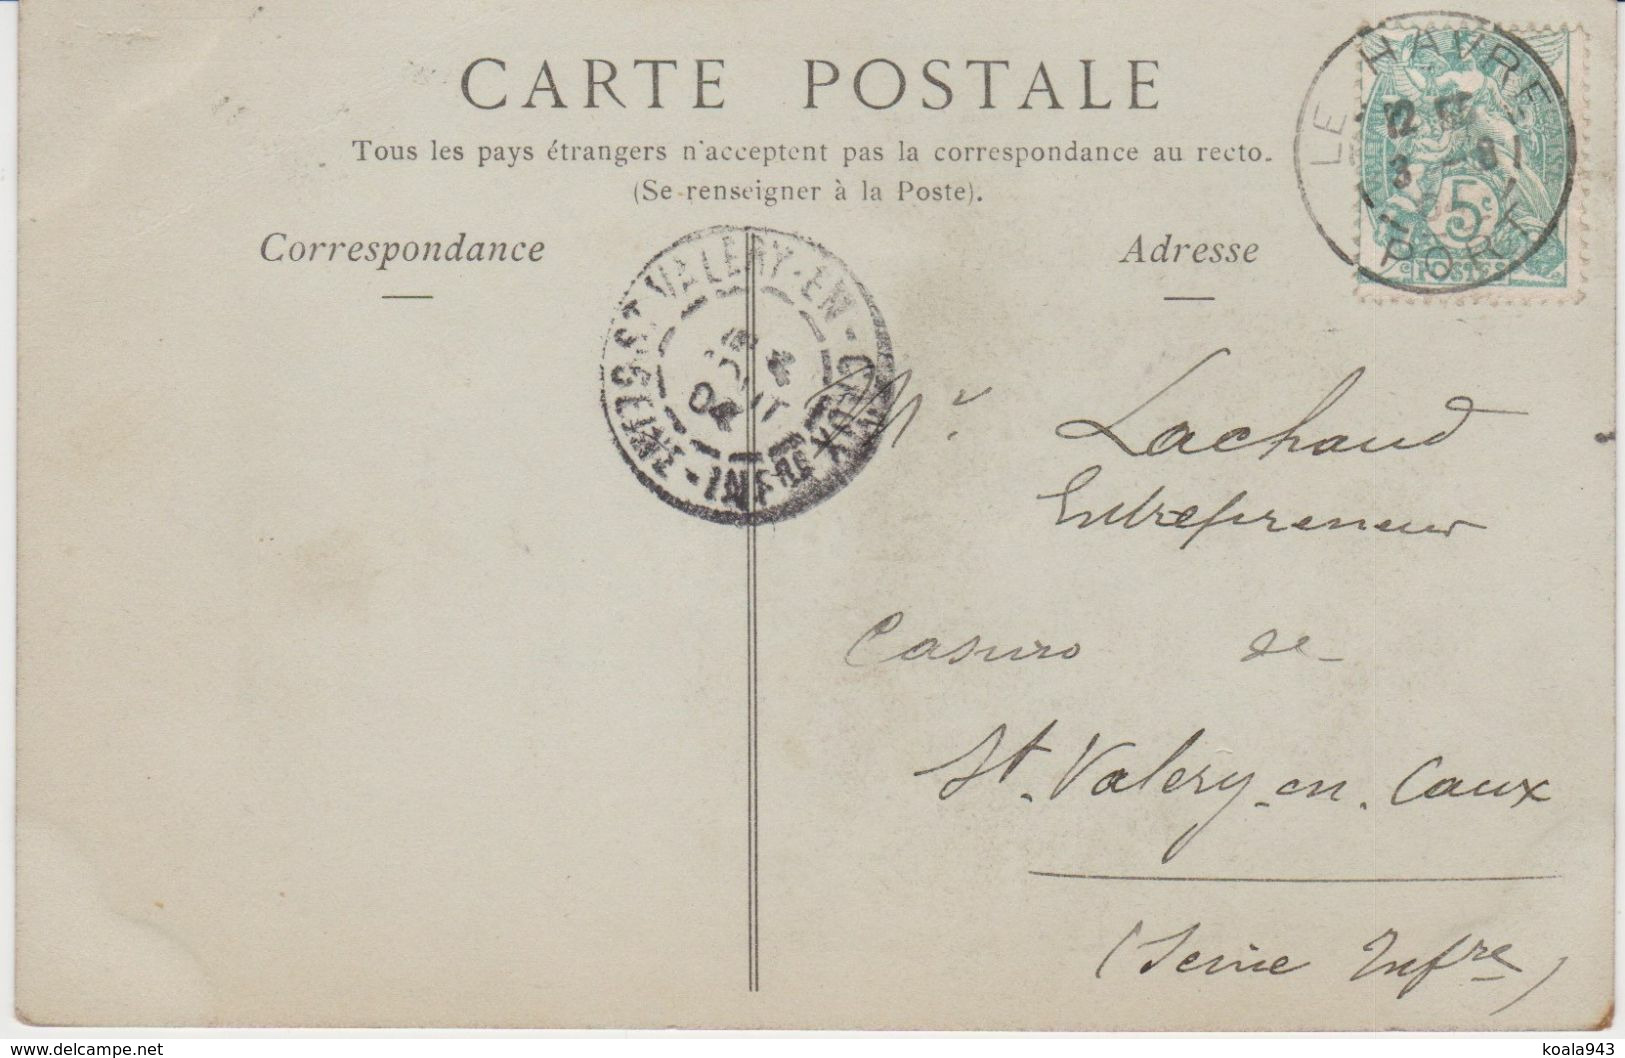 CARTE POSTALE
Tous les pays étrangers n'acceptent pas la correspondance au recto.
(Se renseigner à la Poste).
Correspondance
Adresse
LE HAVRE
12
3 -8
PORT
5c
POSTES
ST VALERY-EN-CAUX
4
AOUT
04
SEINE-INFRE
Mr. Lachaud
Entrepreneur
Casino de
St. Valery-en. Caux
(Seine Infre)
www.delcampe.net
koala943